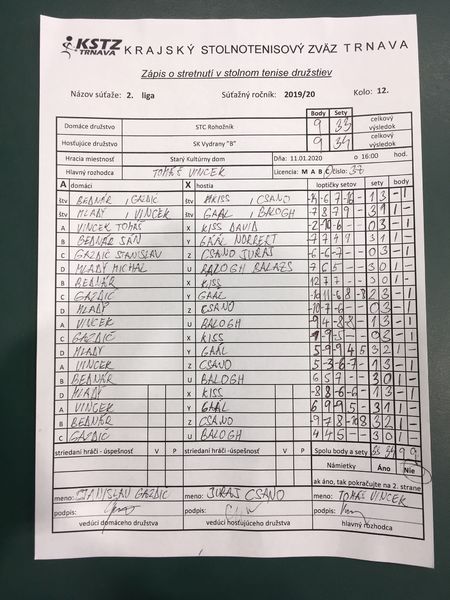 KSTZ
TRNAVA
KRAJSKÝ STOLNOTENISOVÝ ZVÄZ TRNAVA
Zápis o stretnutí v stolnom tenise družstiev
Názov súťaže: 2. liga Súťažný ročník: 2019/20 Kolo: 12.
Body Sety
Domáce družstvo STC Rohožník 9 33 celkový výsledok
Hosťujúce družstvo SK Vydrany "B" 9 34 celkový výsledok
Hracia miestnosť Starý Kultúrny dom Dňa: 11.01.2020 o 16:00 hod.
Hlavný rozhodca TOMÁŠ VINCEK Licencia: M A B C číslo: 37
A domáci X hostia loptičky setov sety body
štv BEDNÁR, GAZDIC štv KISS, CSANO 1 3 - 1
štv MLADY, VINCEK štv GAÁL, BALOGH 7 8 7 9 - 3 1 1 -
A VINCEK TOMÁŠ X KISS DAVID -2 -10 -6 - - 0 3 - 1
B BEDNÁR JÁN Y GAÁL NORBERT 3 1 1 -
C GAZDIC STANISLAV Z CSANO JURAJ -6 -6 -7 - - 0 3 - 1
D MLADY MICHAL U BALOGH BALAZS 7 6 5 - - 3 0 1 -
B BEDNÁR X KISS 12 7 7 - - 3 0 1 -
C GAZDIC Y GAAL -10 11 -6 8 -8 2 3 - 1
D MLADY Z CSANO -10 -7 -6 - - 0 3 - 1
A VINCEK U BALOGH 1 3 - 1
C GAZDIC X KISS 0 3 - 1
D MLADY Y GAÁL 3 2 1 -
A VINCEK Z CSANO 5 -3 -6 -7 - 1 3 - 1
B BEDNÁR U BALOGH 6 5 7 - - 3 0 1 -
D MLADY X KISS -8 8 -6 -6 - 1 3 - 1
A VINCEK Y GAAL 6 9 9 -5 - 3 1 1 -
B BEDNÁR Z CSANO 3 2 1 -
C GAZDIC U BALOGH 4 4 5 - - 3 0 1 -
striedaní hráči - úspešnosť V P striedaní hráči - úspešnosť V P Spolu body a sety 33 34 9 9
Námietky Áno Nie
ak áno, tak pokračujte na 2. strane
meno: STANISLAV GAZDIC meno: JURAJ CSANO meno: TOMÁŠ VINCEK
podpis: podpis: podpis:
vedúci domáceho družstva vedúci hosťujúceho družstva hlavný rozhodca